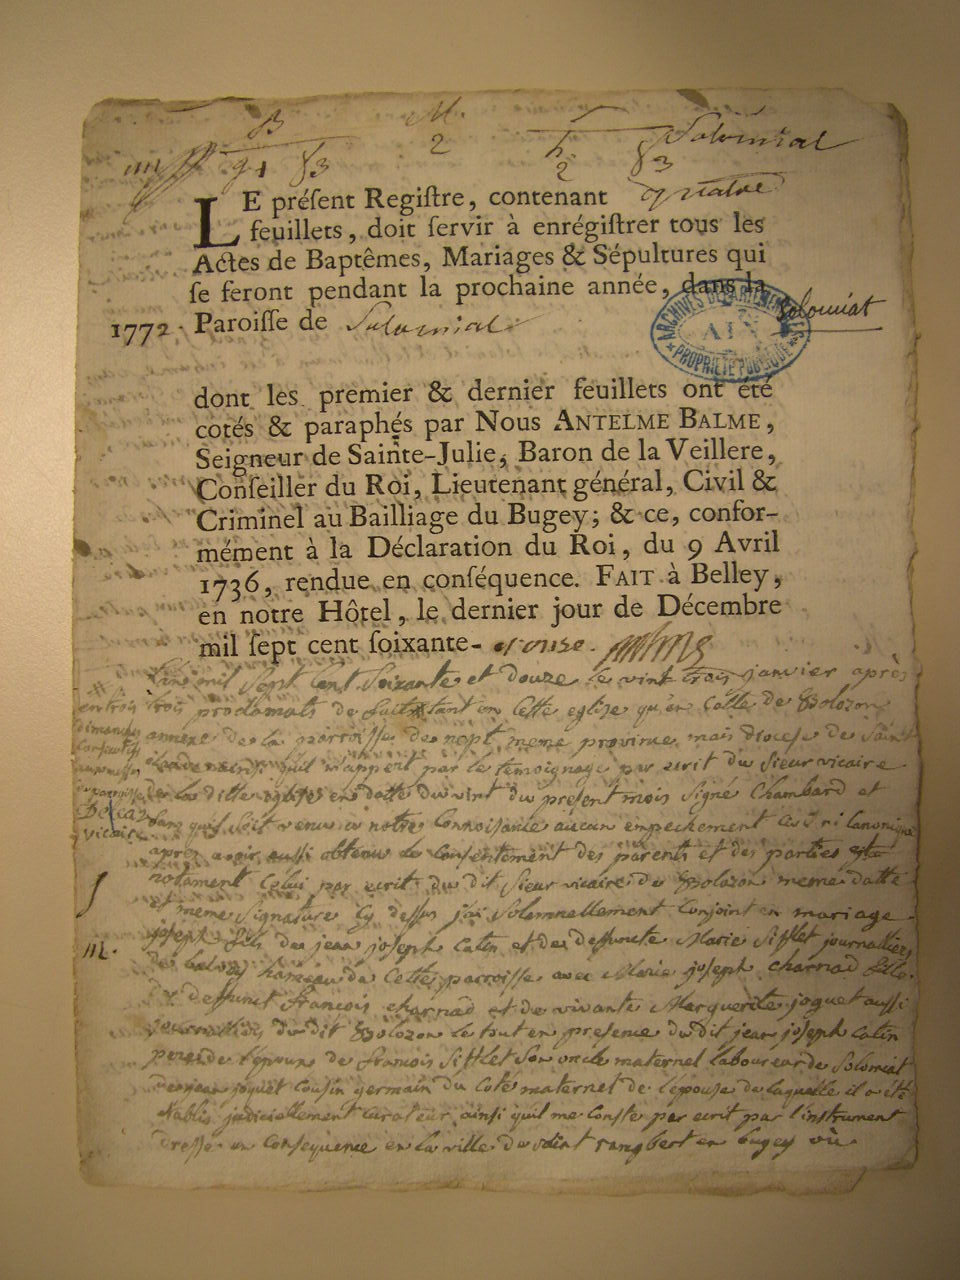 B M. Solomiat
2 2
9 1 83 83
LE préſent Regiſtre, contenant quatre
feuillets, doit ſervir à enrégiſtrer tous les
Actes de Baptêmes, Mariages & Sépultures qui
ſe feront pendant la prochaine année, dans la
1772. Paroiſſe de Solomiat Solomiat
ARCHIVES DÉPARTEMENTALES AIN PROPRIÉTÉ PUBLIQUE
dont les premier & dernier feuillets ont été
cotés & paraphés par Nous ANTELME BALME,
Seigneur de Sainte-Julie, Baron de la Veillere,
Conſeiller du Roi, Lieutenant général, Civil &
Criminel au Bailliage du Bugey; & ce, confor-
mément à la Déclaration du Roi, du 9 Avril
1736, rendue en conſéquence. FAIT à Belley,
en notre Hôtel, le dernier jour de Décembre
mil ſept cent ſoixante- et onze.
L'an mil Sept Cent Soixante et douze le vint trois janvier après
trois proclamats de Suite tant en Cette eglise qu'en Celle de Bolozon
annexe de la parroisse de napt meme province mais diocese de Saint
Claude ainsi qu'il m'appert par le temoignage par ecrit du Sieur vicaire
de la ditte eglise en datte du vint du present mois Signé Chambard et
Sans qu'il Soit venu a notre Connoissance aucun empechement Civil ni Canonique
après avoir aussi obtenu le Consentement des parents et des parties
notament Celui par ecrit du dit Sieur vicaire de Bolozon meme datte
et meme Signature Cy dessus j'ai Solemnellement Conjoint en mariage
joseph fils de jean joseph Catin et de deffuncte Marie Sifflet journalliers
de hameau de Cette parroisse avec Marie joseph charnad fille
de deffunct francois charnad et de vivante Marguerite joguet aussi
journaliers du dit Bolozon le tout en presence du dit jean joseph Catin
pere de l'epoux de francois Sifflet Son oncle maternel laboureur de Solomiat
joguet Cousin germain du Coté maternel de l'epouse de laquelle il a été
etabli judiciellement curateur ainsi qu'il me Conste par ecrit par l'instrument
dressé en Consequence en la ville de Saint rambert en bugey où
en trois
dimanches
vicaire
m.